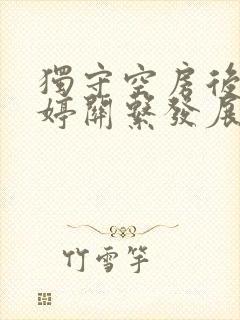 獨守空房後
婷關繫發展
竹雪竿